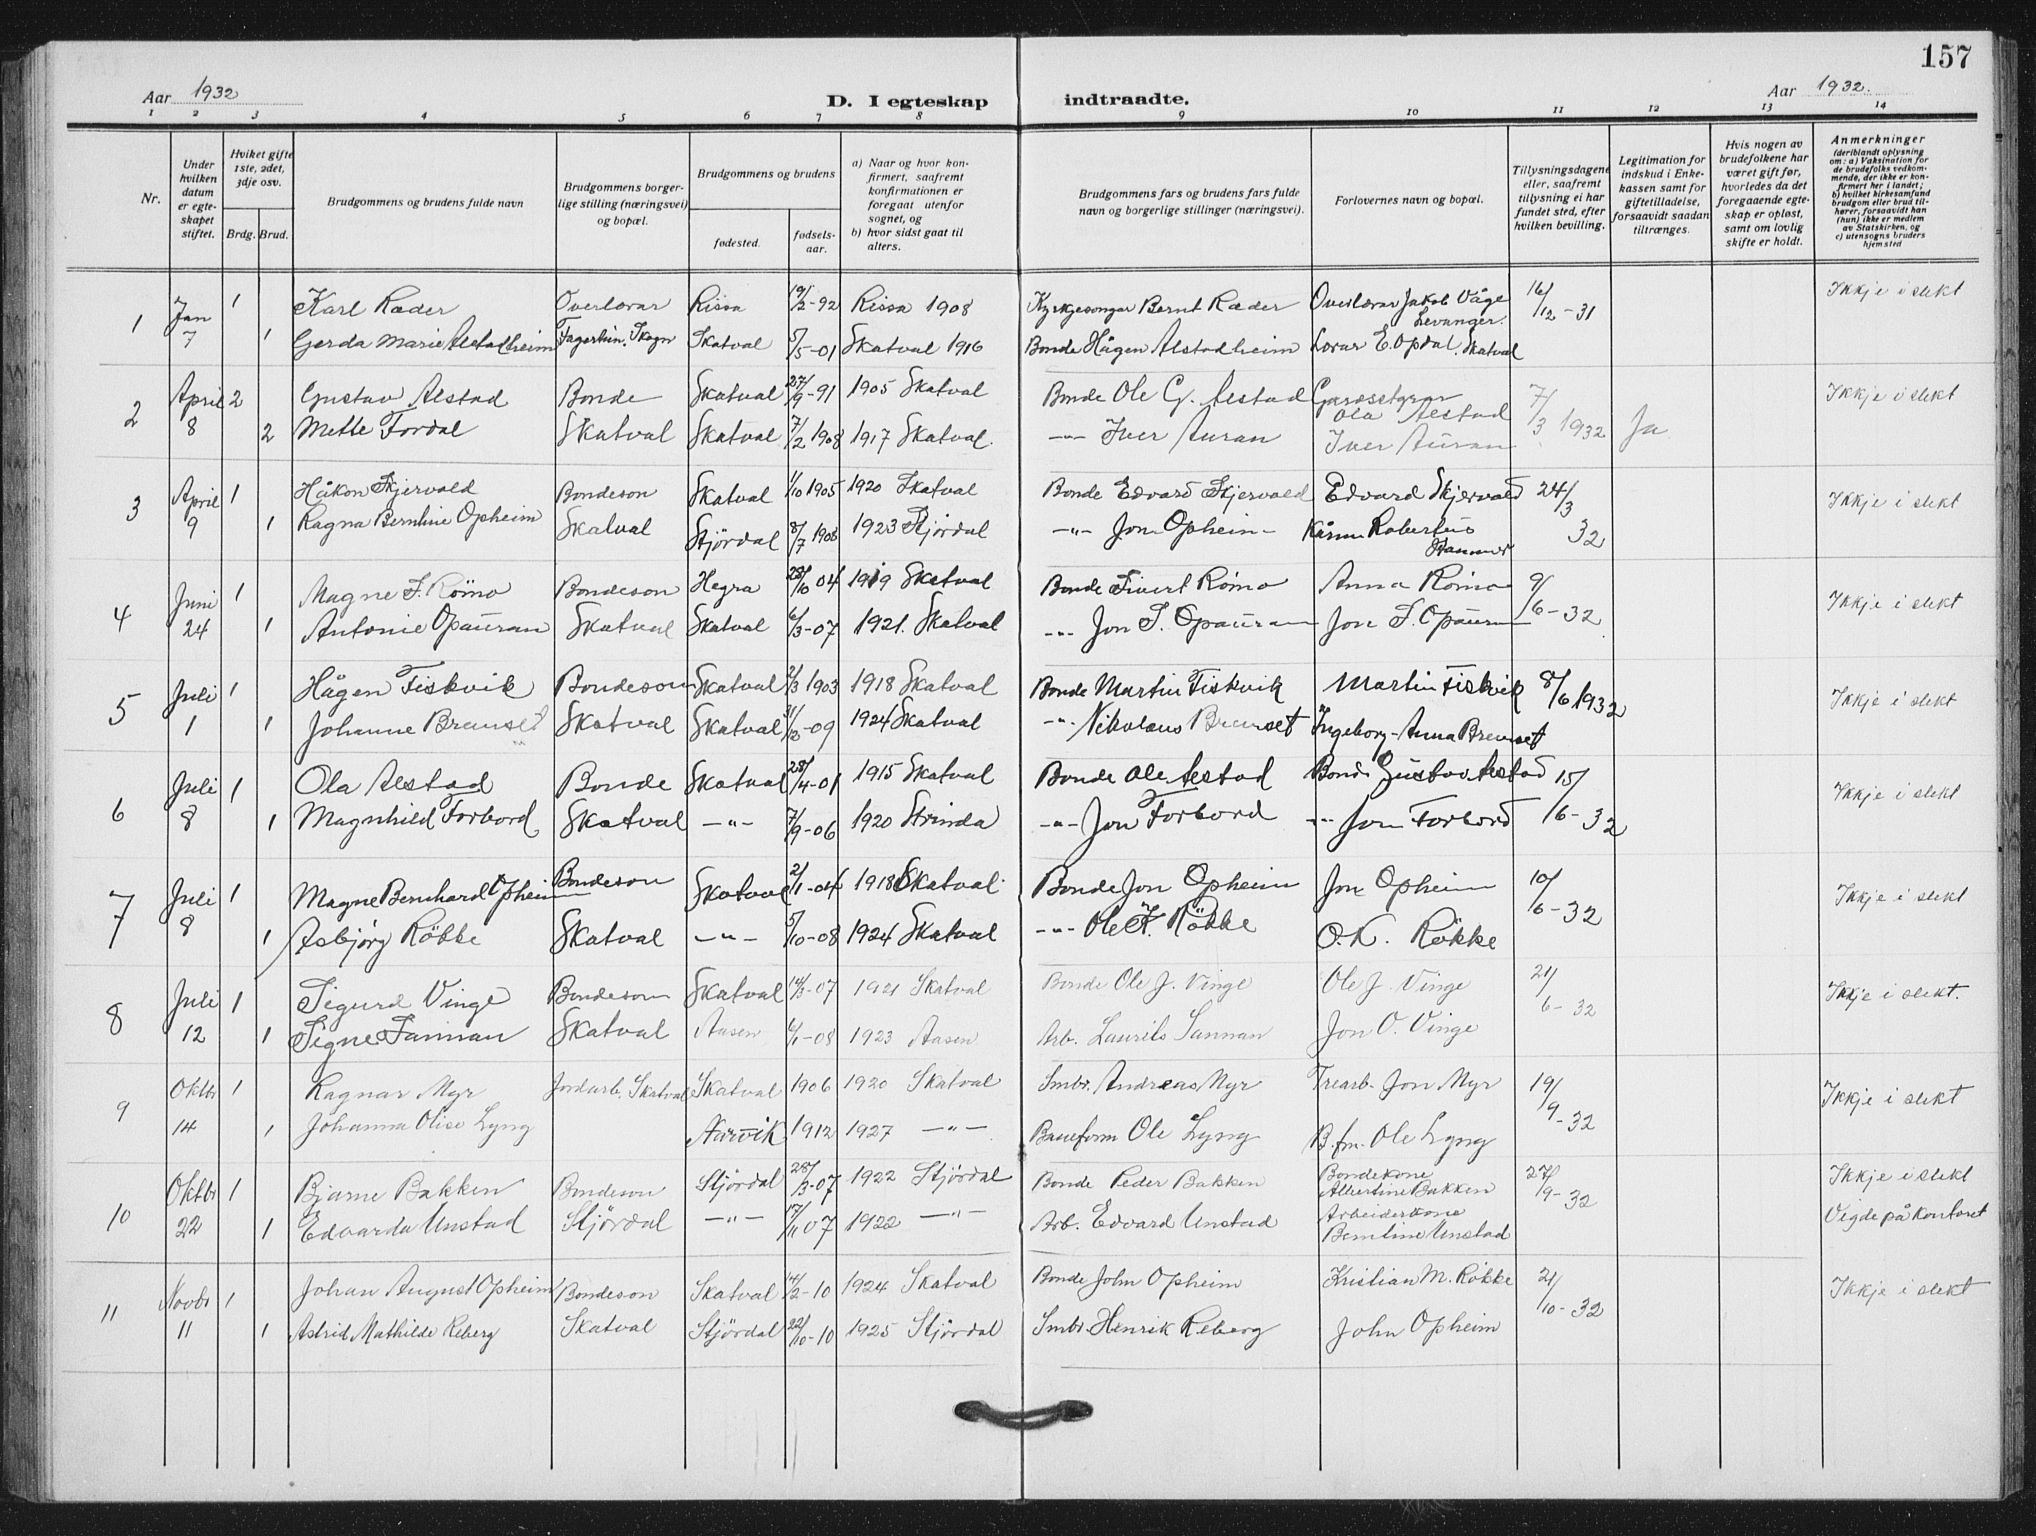 157
Aar 1932
D. I egteskap indtraadte.
Aar 1932.
1 2 3 4 5 6 7 8 9 10 11 12 13 14
Nr.
Under hvilken datum er egteskapet stiftet.
Hviket gifte 1ste, 2det, 3dje osv.
Brdg. Brud.
Brudgommens og brudens fulde navn
Brudgommens borgerlige stilling (næringsvei) og bopæl.
Brudgommens og brudens
fødested.
fødselsaar.
a) Naar og hvor konfirmert, saafremt konfirmationen er foregaat utenfor sognet, og
b) hvor sidst gaat til alters.
Brudgommens fars og brudens fars fulde navn og borgerlige stillinger (næringsvei).
Forlovernes navn og bopæl.
Tillysningsdagene eller, saafremt tillysning ei har fundet sted, efter hvilken bevilling.
Legitimation for indskud i Enkekassen samt for giftetilladelse, forsaavidt saadan tiltrænges.
Hvis nogen av brudefolkene har været gift før, hvorledes da det foregaaende egteskap er opløst, samt om lovlig skifte er holdt.
Anmerkninger (deriblandt oplysning om: a) Vaksination for de brudefolks vedkommende, der ikke er konfirmert her i landet; b) hvilket kirkesamfund brudgom eller brud tilhører, forsaavidt han (hun) ikke er medlem av Statskirken, og c) utensogns bruders hjemsted
1 Jan 7 1 Karl Ræder Overlærar Rissa 19/2-92 Rissa 1908 Kyrkjesongar Bernt Ræder Overlærar Jakob Våge Levanger. 16/12-31 Ikkje i slekt
1 Gerda Marie Alstadheim Fagerhin. Skogn Skatval 5/5-01 Skatval 1916 Bonde Hågen Alstadheim Lærar E. Opdal, Skatval
2 April 8 2 Gustav Alstad Bonde Skatval 27/9-91 1905 Skatval Bonde Ole G. Alstad Ola Alstad 7/3 1932 Ja Ikkje i slekt
2 Mette Fordal Skatval Skatval 7/2 1908 1917 Skatval. -"- Iver Auran Iver Auran
3 April 9 1 Håkon Skjervold Bondeson Skatval 1/10 1905 1920 Skatval Bonde Edvard Skjervold Edvard Skjervold 24/3 32 Ikkje i slekt
1 Ragna Berntine Opheim Skatval Stjørdal 8/7 1908 1923 Stjørdal -"- Jon Opheim Robertus
4 Juni 24 1 Magne S. Römo Bondeson Hegra 28/10 04 1919 Skatval Bonde Sivert Römo Anna Römo 9/6-32 Ikkje i slekt
1 Antonie Opauran Skatval Skatval 6/3-07 1921. Skatval -"- Jon S. Opauran Jon S. Opauran
5 Juli 1 1 Hågen Fiskvik Bondeson Skatval 2/3 1903 1918 Skatval Bonde Martin Fiskvik Martin Fiskvik 8/6 1932 Ikkje i slekt
1 Johanne Bremset Skatval Skatval 31/12-09 1924 Skatval -"- Nikolaus Bremset Ingeborg-Anna Bremset
6 Juli 8 1 Ola Alstad Bonde Skatval 28/4-01 1915 Skatval Bonde Ole Alstad Bonde Gustav Alstad 15/6-32 Ikkje i slekt
1 Magnhild Forbord Skatval -"- 7/9-06 1920 Strinda -"- Jon Forbord -"- Jon Forbord
7 Juli 8 1 Magne Bernhard Opheim Bondeson Skatval 2/1-04 1918 Skatval Bonde Jon Opheim Jon Opheim 10/6-32 Ikkje i slekt
1 Asbjørg Røkke Skatval -"- 5/10-08 1924 Skatval -"- Ole K. Røkke O. K. Røkke
8 Juli 12 1 Sigurd Vinge Bondeson Skatval 14/3-07 1921 Skatval Bonde Ole J. Vinge Ole J. Vinge 21/6-32 Ikkje i slekt.
1 Signe Sannan Skatval Aasen 6/1-08 1923 Aasen Arb. Laurits Sannan Jon O. Vinge
9 Oktbr 14 1 Ragnar Myr Jordarb. Skatval Skatval 1906 1920 Skatval Smbr. Andreas Myr Trearb. Jon Myr 19/9-32 Ikkje i slekt
1 Johanna Olise Lyng Narvik 1912 1927 -"- Baneform Ole Lyng B.fm. Ole Lyng
10 Oktbr 22 1 Bjarne Bakken Bondeson Stjördal 28/3-07 1922 Stjördal Bonde Peder Bakken Bondekone Albertine Bakken 27/9-32 Ikkje i slekt
1 Edvarda Unstad Stjördal -"- 17/11 07 1922 -"- Arb. Edvard Unstad Arbeiderkone Berntine Unstad Vigde på kontoret
11 Novbr 11 1 Johan August Opheim Bondeson Skatval 14/2-10 1924 Skatval Bonde John Opheim Kristian M. Røkke 21/10-32 Ikkje i slekt
1 Astrid Mathilde Reberg Skatval Stjördal 22/10-10 1925 Stjördal Smbr. Henrik Reberg John Opheim